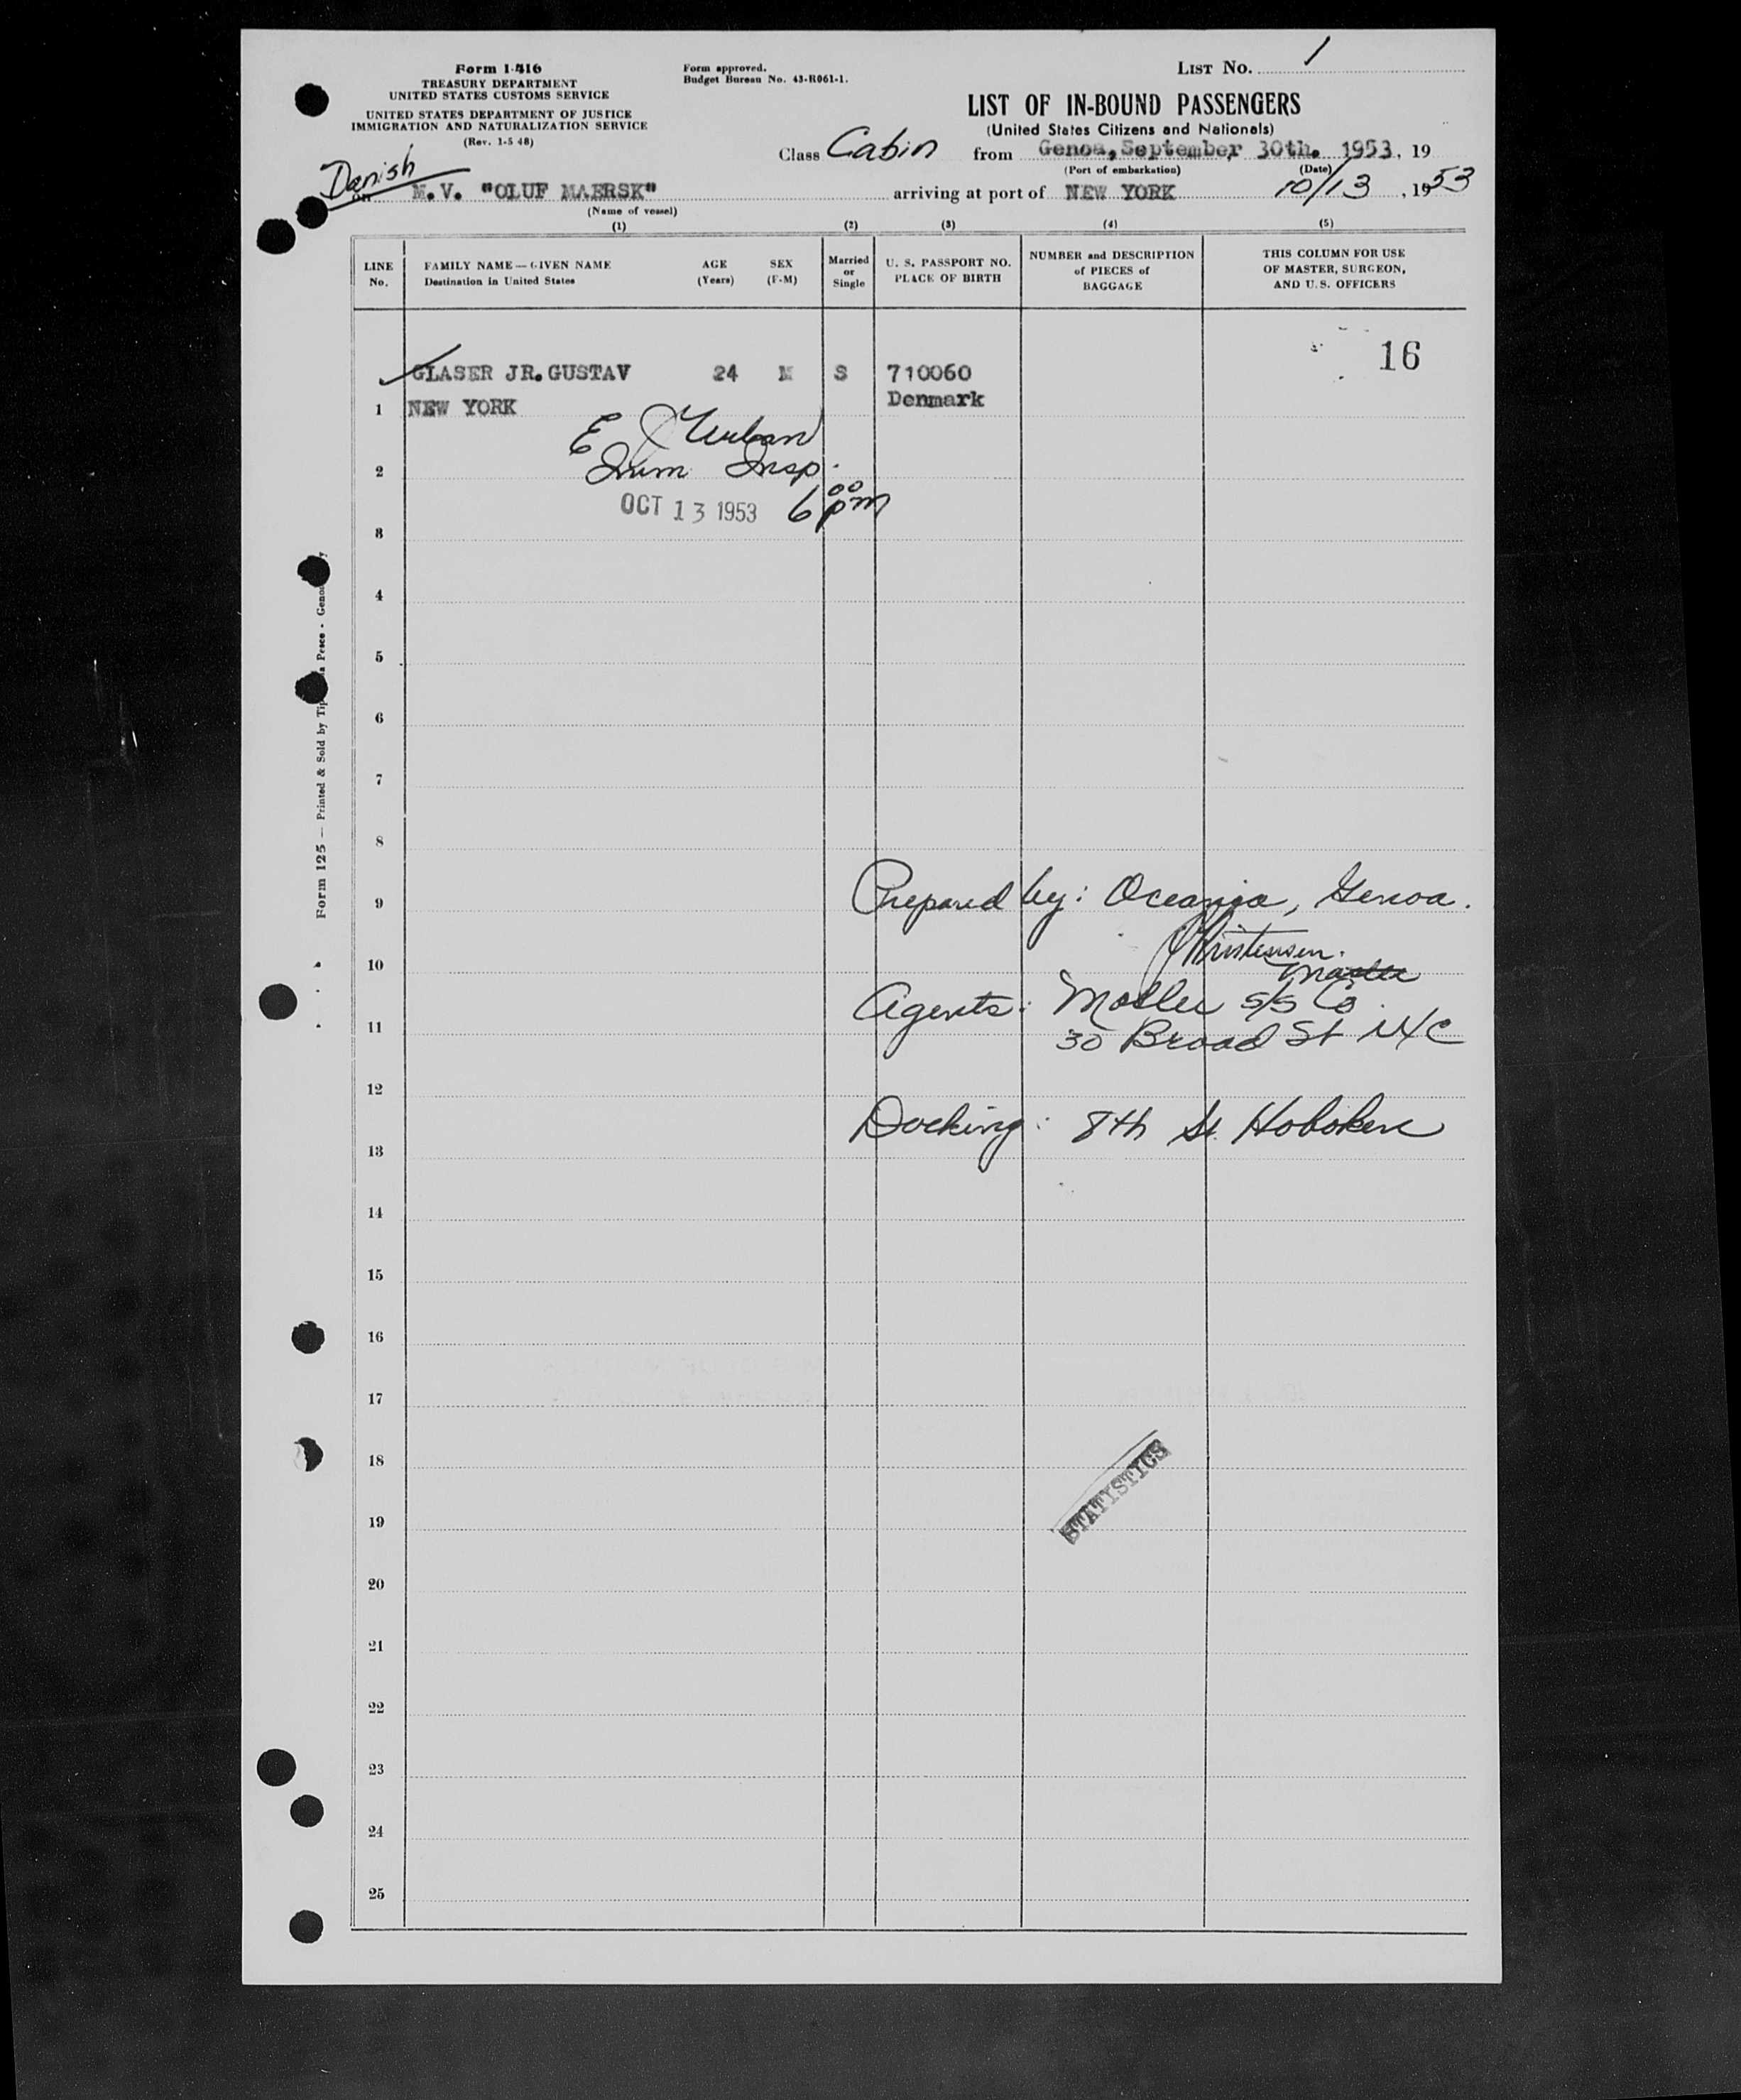 Form I-416
TREASURY DEPARTMENT
UNITED STATES CUSTOMS SERVICE
UNITED STATES DEPARTMENT OF JUSTICE
IMMIGRATION AND NATURALIZATION SERVICE
(Rev. 1-5 48)
Form approved.
Budget Bureau No. 43-R061-1.
LIST No. 1
LIST OF IN-BOUND PASSENGERS
(United States Citizens and Nationals)
Class Cabin from Genoa, September 30th. 1953, 19
(Port of embarkation) (Date)
Danish
on M.V. "OLUF MAERSK" arriving at port of NEW YORK 10/13, 1953
(Name of vessel)
(1) (2) (3) (4) (5)
LINE No.
FAMILY NAME — GIVEN NAME
Destination in United States
AGE (Years)
SEX (F-M)
Married or Single
U. S. PASSPORT NO.
PLACE OF BIRTH
NUMBER and DESCRIPTION
of PIECES of
BAGGAGE
THIS COLUMN FOR USE
OF MASTER, SURGEON,
AND U.S. OFFICERS
16
GLASER JR. GUSTAV 24 M S 710060
1 NEW YORK Denmark
E J
2 Imm Insp.
OCT 13 1953 6 00 pm
3
4
5
6
7
8
9
Prepared by: Oceania, Genoa.
Christensen.
10
Master
Agents: Moller S/S Co.
11
30 Broad St NYC
12
Docking: 8th St. Hoboken
13
14
15
16
17
18
STATISTICS
19
20
21
22
23
24
25
Form 125 — Printed & Sold by Tip a Pesce - Genoa